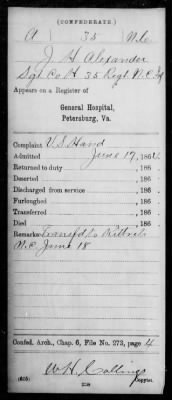 (CONFEDERATE.)
A 35 N.C.
J. H. Alexander
Sgt Co H 35 Regt N.C.
Appears on a Register of
General Hospital,
Petersburg, Va.
Complaint V.S. Hand
Admitted June 17, 1864.
Returned to duty , 186 .
Deserted , 186 .
Discharged from service , 186 .
Furloughed , 186 .
Transferred , 186 .
Died , 186 .
Remarks: Transfd to Kittrels
N.C. June 18
Confed. Arch., Chap. 6, File No. 273, page 4
W H Collings
(635) Copyist.